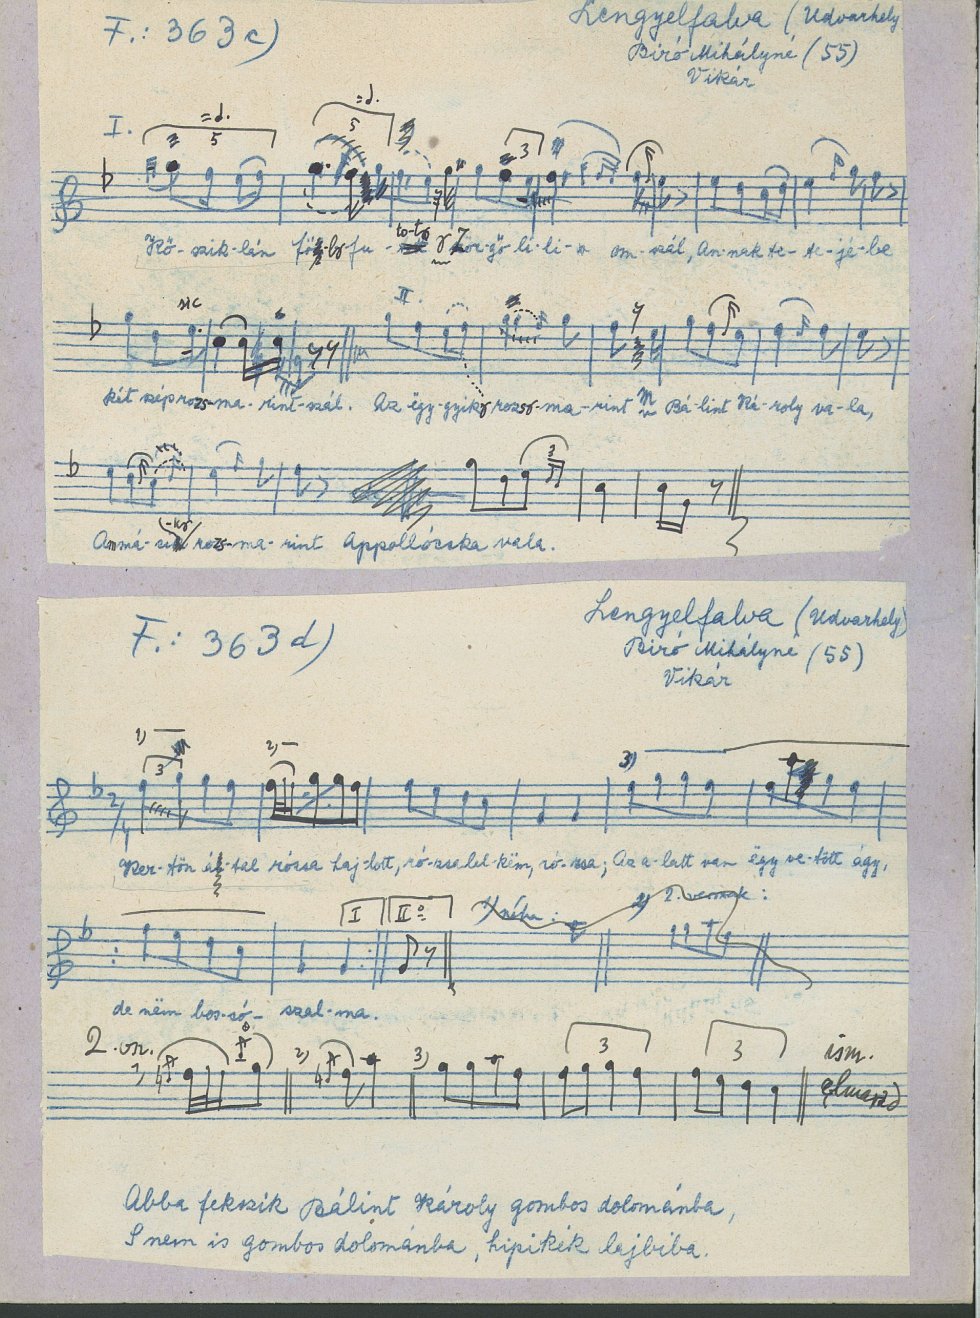 F.: 363 c)
Lengyelfalva (Udvarhely
Biró Mihályné (55)
Vikár
I.
=d.
5
=d.
5
3
Kő-szik-lán fu- zör-gő li-li-o om-szál, An-nak te-te-jé-be
sic
II.
két szép rozs-ma-rint-szál. Az ëgy-gyik rozs-ma-rint Bá-lint Ká-roly va-la,
3
Anmá-sik rozs-ma-rint Appollócska vala.
F.: 363 d)
Lengyelfalva (Udvarhely)
Biró Mihályné (55)
Vikár
1)
3
2)
3)
2/4
Ker-tön ál-tal rózsa haj-lott, ró-zsa lel-këm, ró-zsa; Az a-latt van ëgy ve-tött ágy,
I
II
1) néha:
2) 2. versnek:
de nëm bos-só- szal-ma.
2. vn.
1)
2)
3)
3
3
ism.
elmarad
Abba fekszik Bálint Károly gombos dolománba,
S nem is gombos dolománba, hipikék lajbiba.